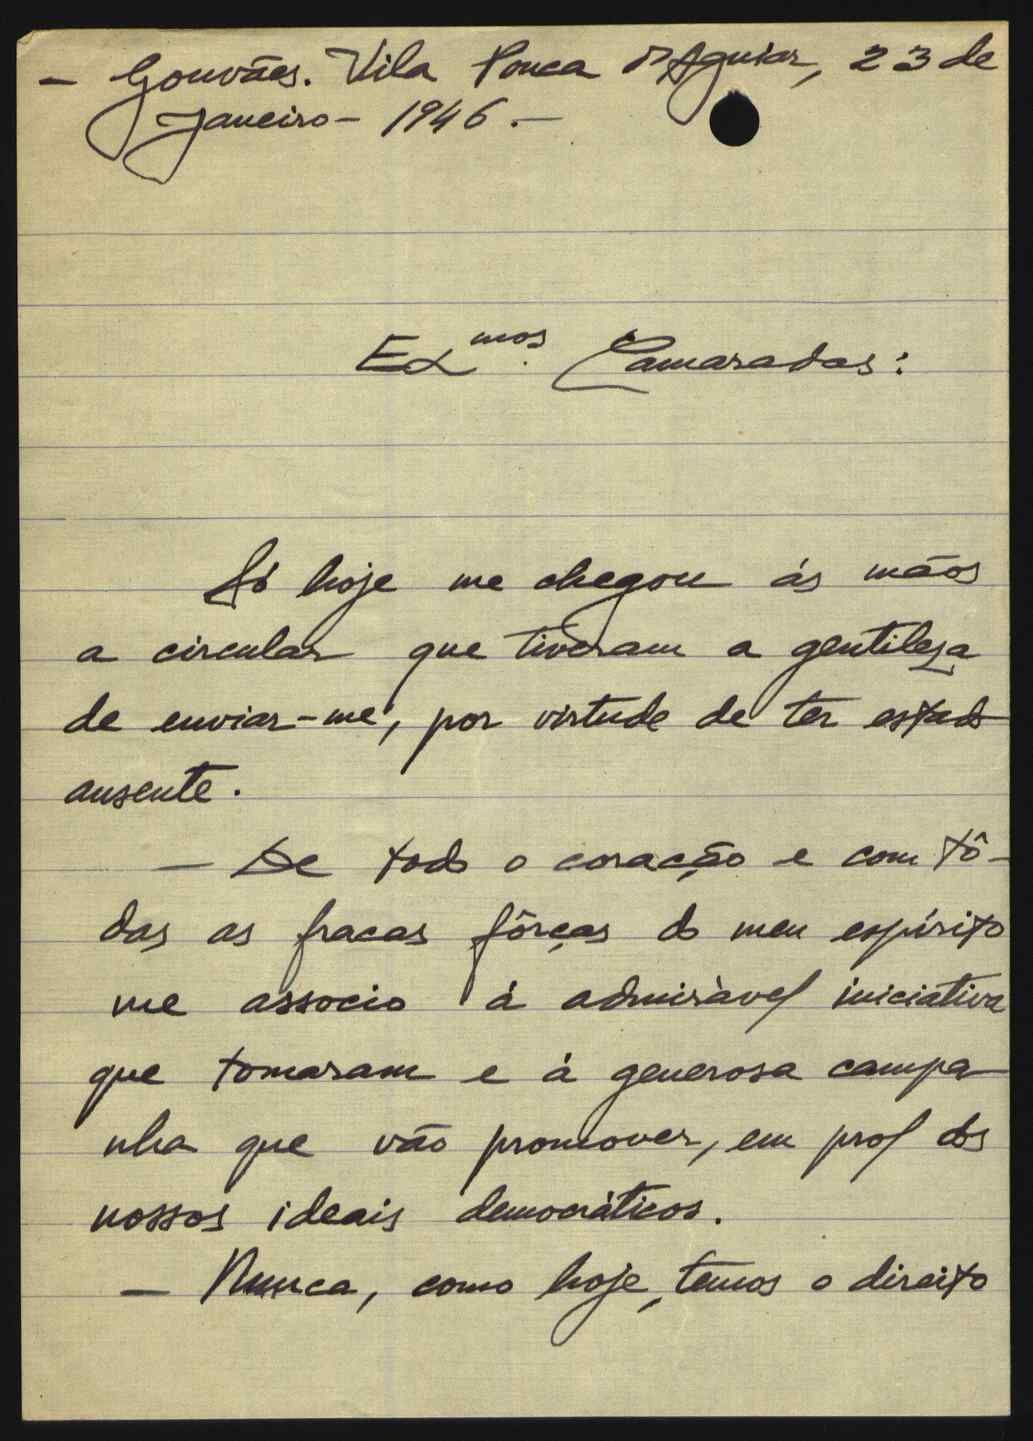 - Gouvães. Vila Pouca d'Aguiar, 23 de
Janeiro - 1946. -
Exmos. Camaradas:
Só hoje me chegou ás mãos
a circular que tiveram a gentileza
de enviar-me, por virtude de ter estado
ausente.
- De todo o coração e com tô-
das as fracas fôrças do meu espírito
me associo á admirável iniciativa
que tomaram e á generosa campa
nha que vão promover, em prol dos
nossos ideais democráticos.
- Nunca, como hoje, temos o direito